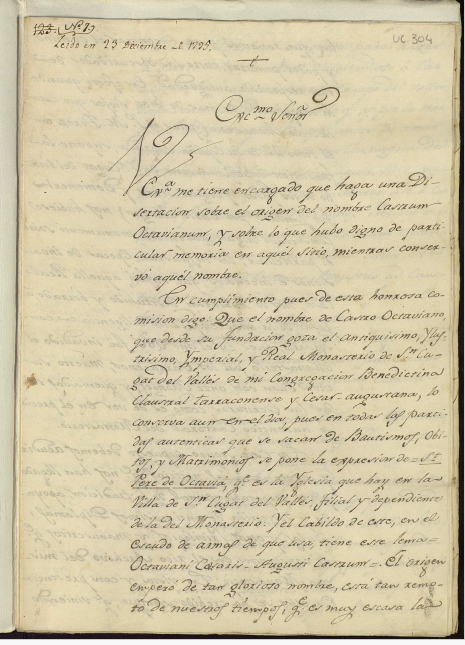 Nº 7
UC 304
Leido en 23 Diciembre de 1795.
Excmo Señor
V
Exª me tiene encargado que haga una Di-
sertacion sobre el origen del nombre Castrum
Octavianum, y sobre lo que hubo digno de parti-
cular memoria en aquel sitio, mientras conser-
vó aquel nombre.
En cumplimiento pues de esta honrosa co-
mision digo: Que el nombre de Castro Octaviano,
que desde su fundacion goza el antiquisimo, Ylus-
trisimo, Ymperial, y Real Monasterio de Sn Cu-
gat del Vallés de mi Congregacion Benedictina
Claustral Tarraconense y Cesar-augustana, lo
conserva aun en el dia, pues en todas las parti-
das autenticas que se sacan de Bautismos, Obi-
tos, y Matrimonios se pone la expresion de = St
Pere de Octaviá, qe es la Yglesia que hay en la
Villa de Sn Cugat del Vallés filial y dependiente
de la del Monasterio: Y el Cabildo de este, en el
escudo de armas de que usa, tiene este lema =
Octaviani Cæsaris Augusti Castrum =. El origen
emperó de tan glorioso nombre, está tan remo-
to de nuestros tiempos, qe es muy escasa la